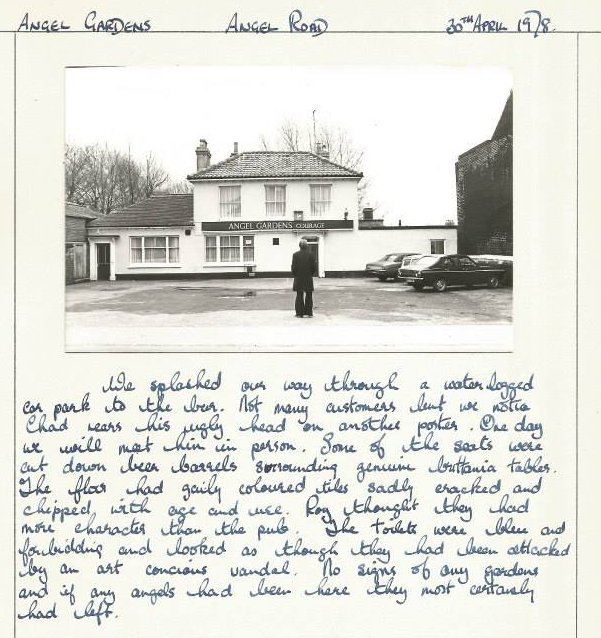 ANGEL GARDENS ANGEL ROAD 30TH APRIL 1978.
ANGEL GARDENS COURAGE
We splashed our way through a water logged
car park to the bar. Not many customers but we notice
Chad rears his ugly head on another poster. One day
we will meet him in person. Some of the seats were
cut down beer barrels surrounding genuine brittania tables.
The floor had gaily coloured tiles sadly cracked and
chipped, with age and use. Roy thought they had
more character than the pub. The toilets were bleu and
forbidding and looked as though they had been attacked
by an art concious vandal. No signs of any gardens
and if any angels had been here they most certainly
had left.